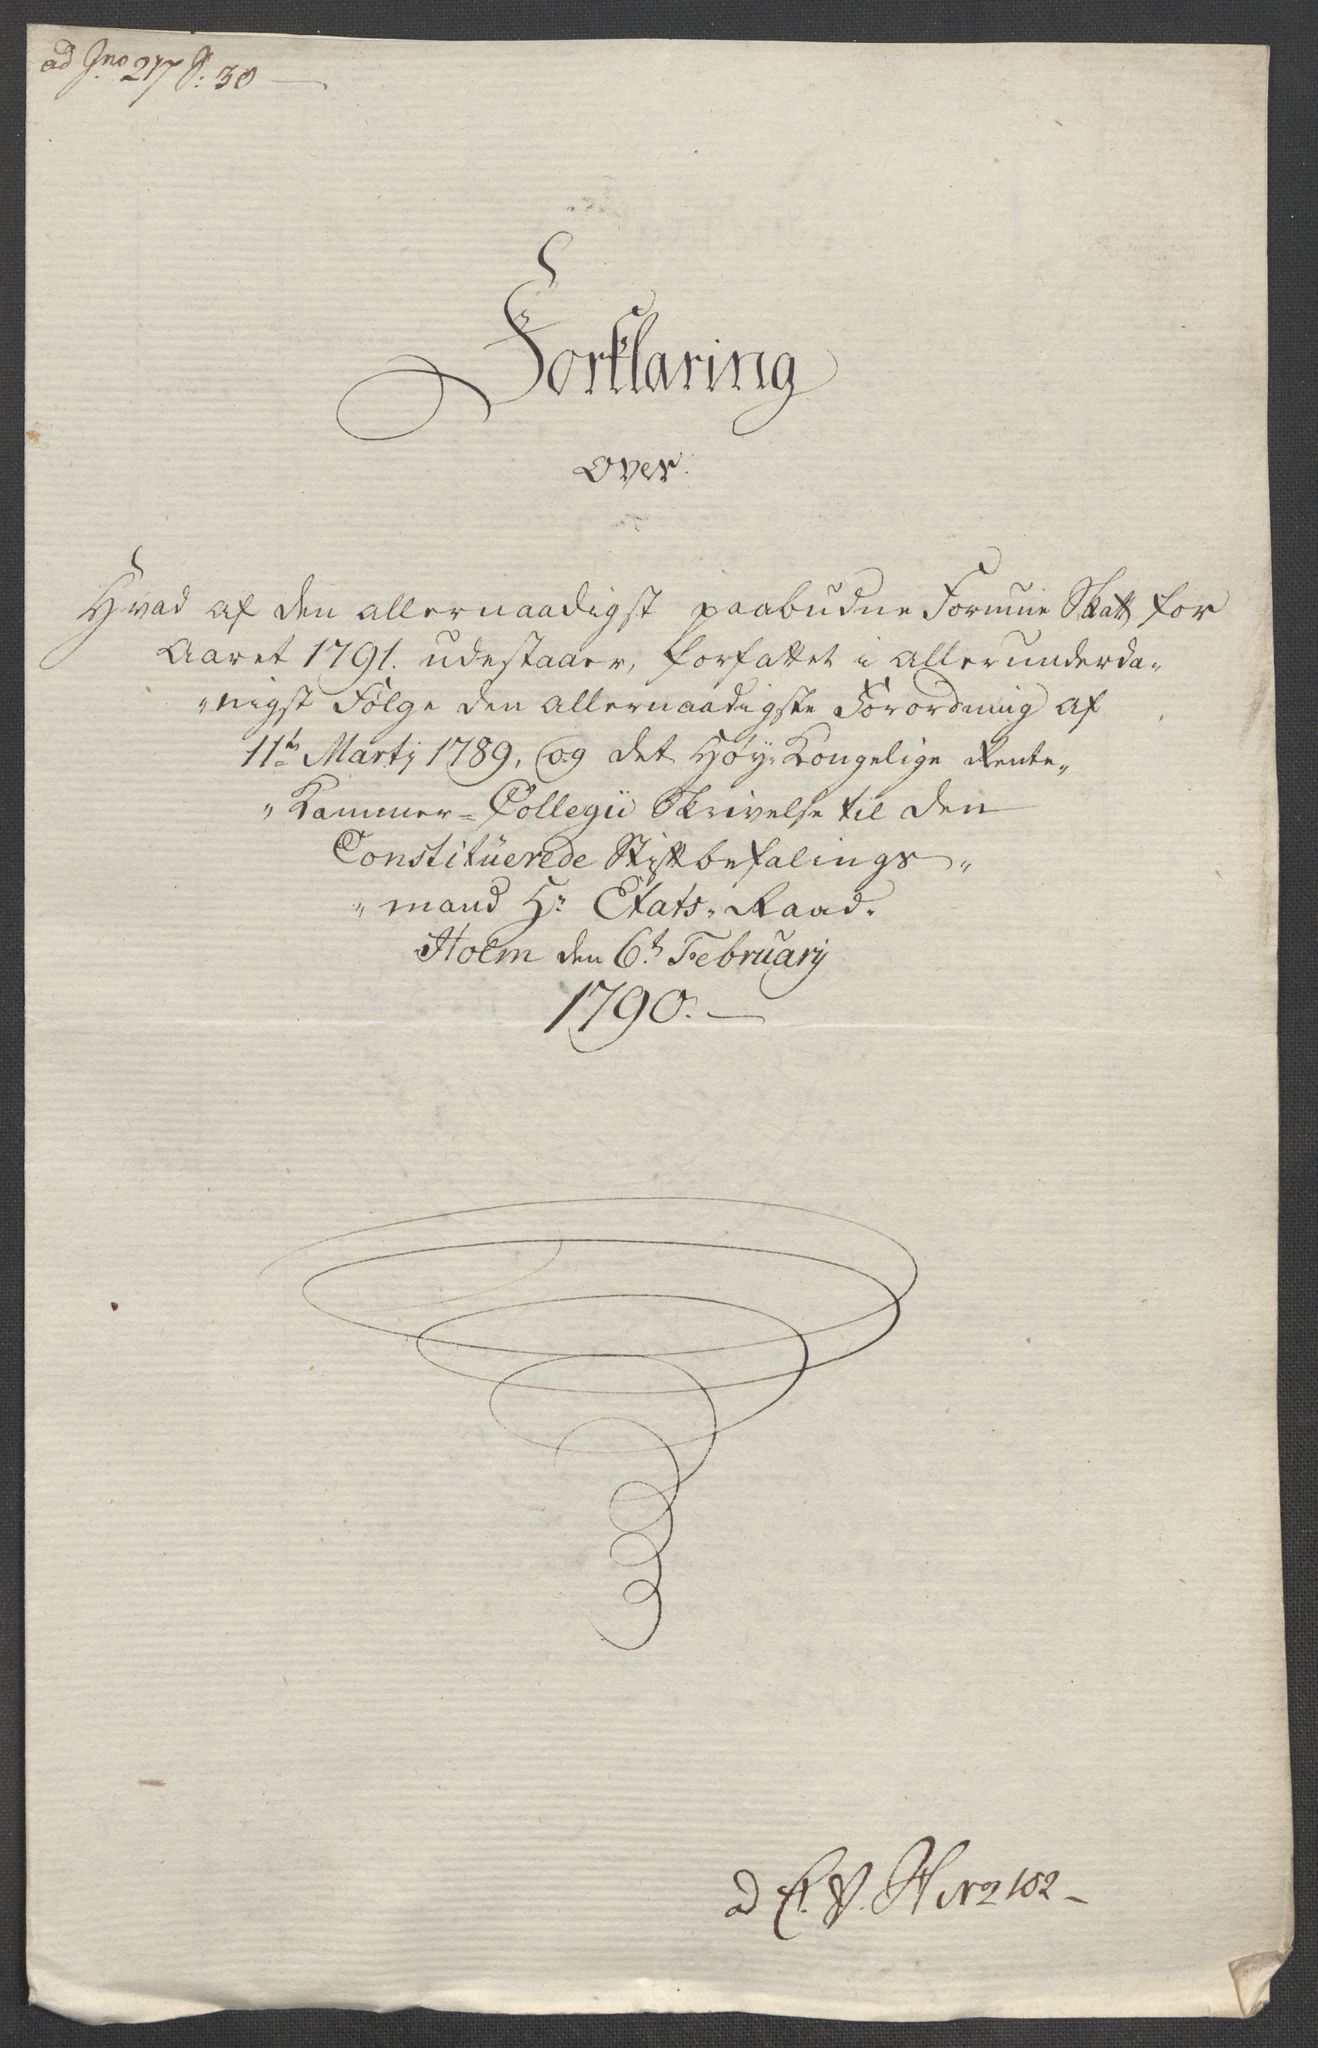 ad Jno 217 P: 30
Forklaring
over
Hvad af den allernaadigst paabudne Formue Skatt for
Aaret 1791. udestaaer, forfattet i allerunderda„
„nigst Følge den allernaadigste Forordning af
11te Martj 1789, og det Høy-Kongelige Rente„
„Kammer-Collegii Skrivelse til den
Constitüerede Stiftbefalings„
„mand Hr Etats-Raad.
Holm den 6te Februarij
1790.
ad No 102